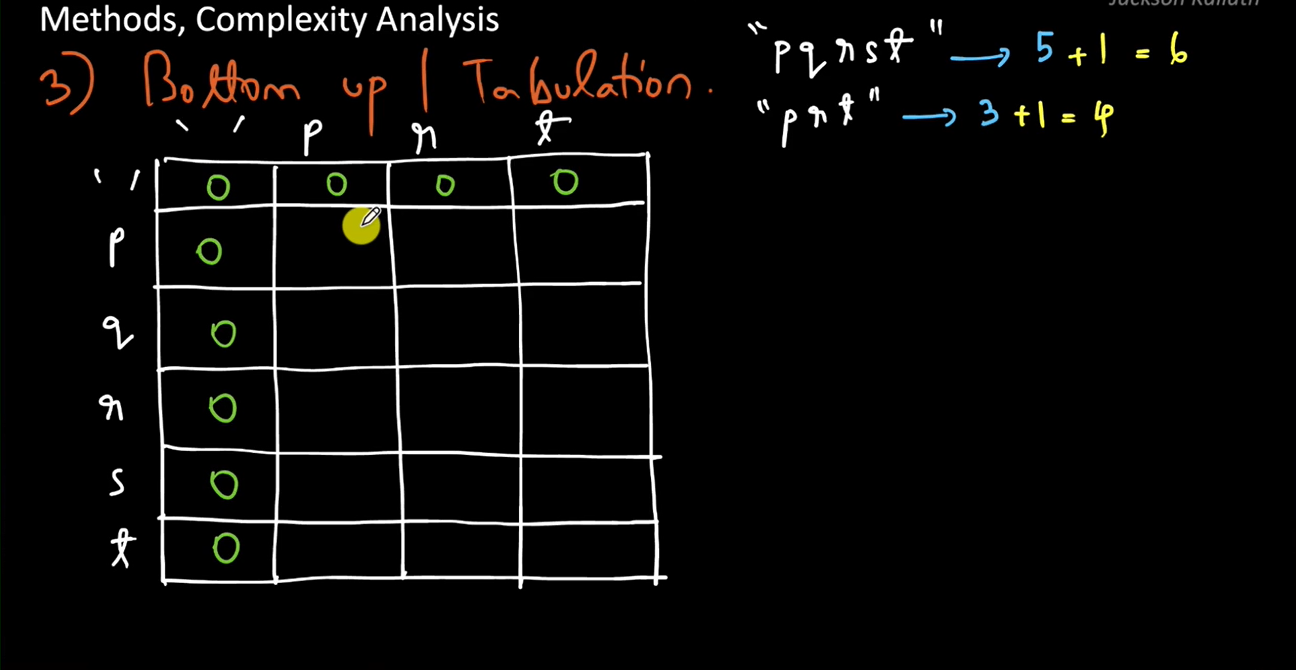 Methods, Complexity Analysis
3) Bottom up | Tabulation.
"pqrst" → 5 + 1 = 6
"prt" → 3 + 1 = 4
' ' p r t
' ' 0 0 0 0
p 0
q 0
r 0
s 0
t 0